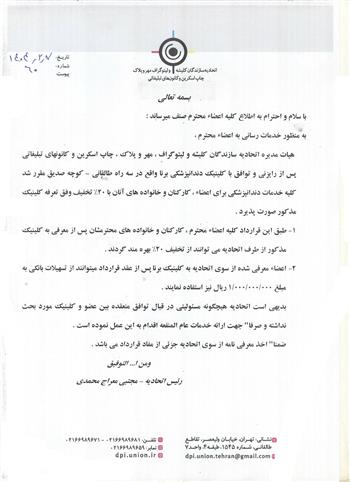 اتحادیه سازندگان کلیشه و لیتوگراف، مهر و پلاک
چاپ اسکرین و کانون‌های تبلیغاتی
تاریخ:
شماره: ۶۰
پیوست:
بسمه تعالی
با سلام و احترام به اطلاع کلیه اعضاء محترم صنف میرساند :
به منظور خدمات رسانی به اعضاء محترم ،
هیات مدیره اتحادیه سازندگان کلیشه و لیتوگراف ، مهر و پلاک ، چاپ اسکرین و کانونهای تبلیغاتی
پس از رایزنی و توافق با کلینیک دندانپزشکی برنا واقع در سه راه طالقانی - کوچه صدیق مقرر شد
کلیه خدمات دندانپزشکی برای اعضاء ، کارکنان و خانواده های آنان با ۲۰٪ تخفیف وفق تعرفه کلینیک
مذکور صورت پذیرد .
۱- طبق این قرارداد کلیه اعضاء محترم ، کارکنان و خانواده های محترمشان پس از معرفی به کلینیک
مذکور از طرف اتحادیه می توانند از تخفیف ۲۰٪ بهره مند گردند .
۲- اعضاء معرفی شده از سوی اتحادیه به کلینیک برنا پس از عقد قرارداد میتوانند از تسهیلات بانکی به
مبلغ ۱/۰۰۰/۰۰۰/۰۰۰ ریال نیز استفاده نمایند .
بدیهی است اتحادیه هیچگونه مسئولیتی در قبال توافق منعقده بین عضو و کلینیک مورد بحث
نداشته و صرفا" جهت ارائه خدمات عام المنفعه اقدام به این عمل نموده است .
ضمنا" اخذ معرفی نامه از سوی اتحادیه جزئی از مفاد قرارداد می باشد .
ومن ا... التوفیق
رئیس اتحادیه - مجتبی معراج محمدی
نشانی: تهران، خیابان ولیعصر، تقاطع
طالقانی، شماره ۱۵۴۵، طبقه۴، واحد۷
dpi.union.tehran@gmail.com
تلفن: ۰۲۱۶۶۹۸۹۶۸۱ - ۰۲۱۶۶۹۸۹۶۷۱
نمابر: ۰۲۱۶۶۹۸۹۶۵۹
dpi.union.ir